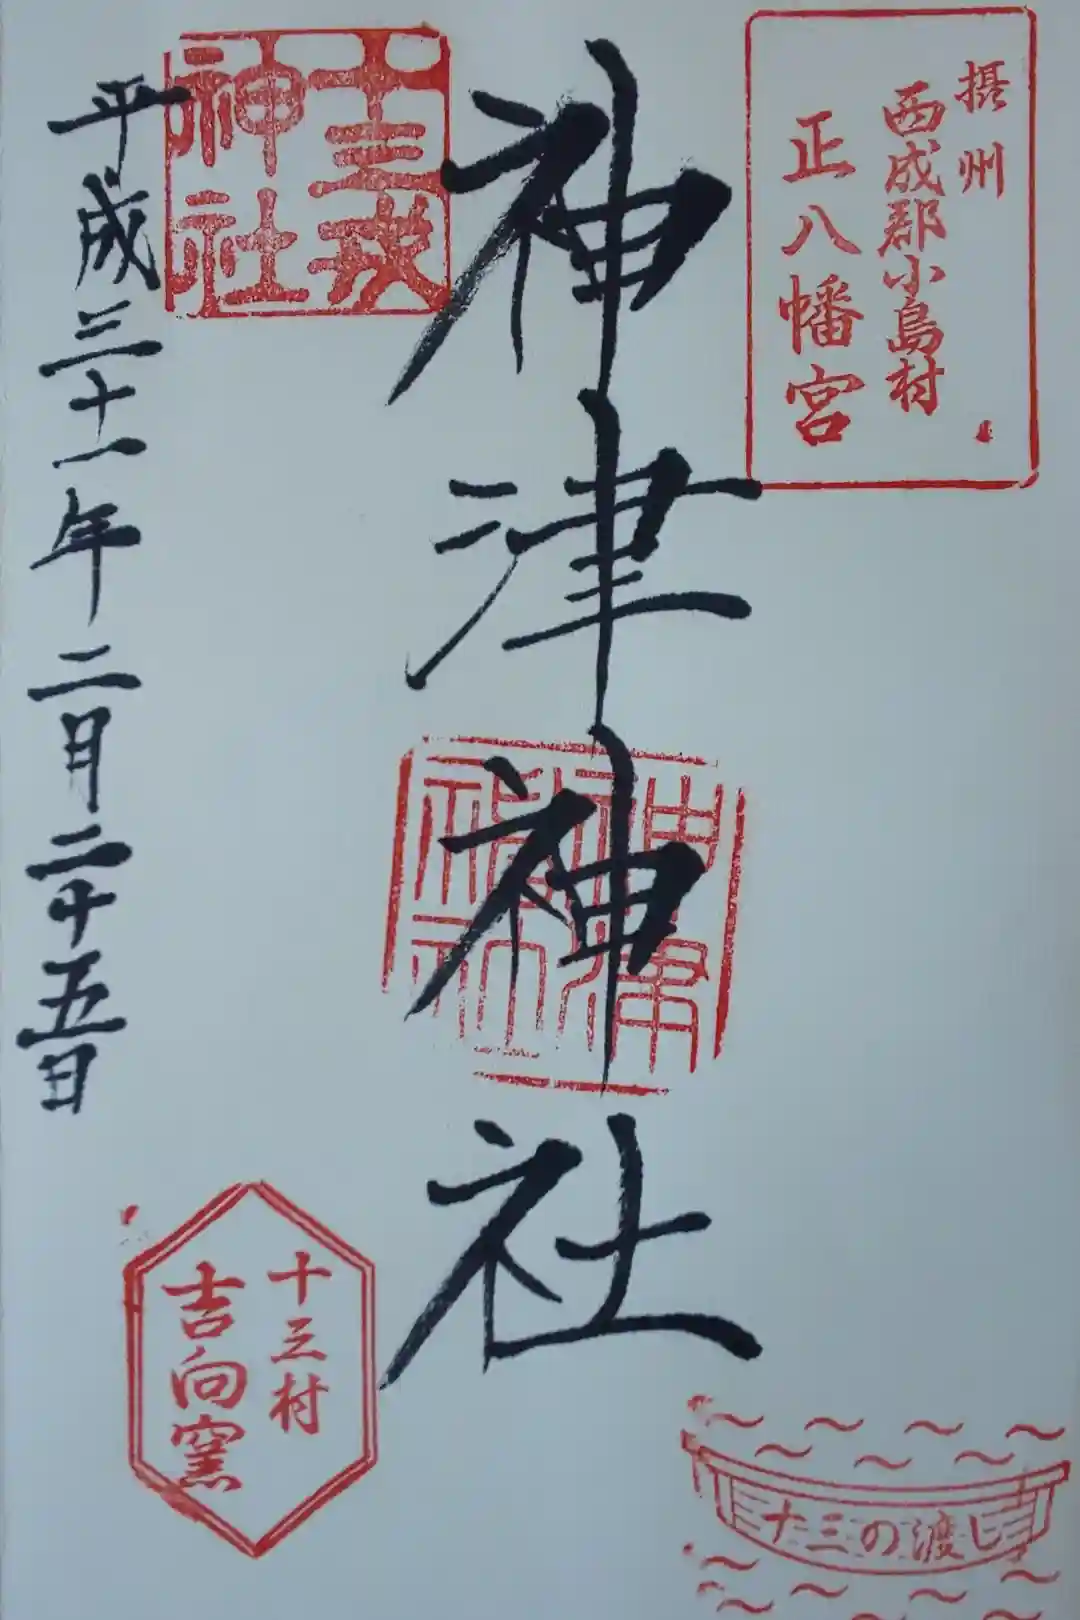 摂州
西成郡小島村
正八幡宮
神津神社
神津
神社
十三戎
神社
平成三十一年二月二十五日
十三村
吉向窯
十三の渡し